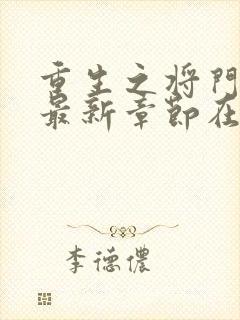 重生之将门
最新章节在
李德儂